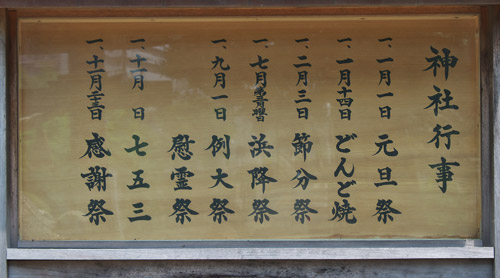 神社行事
一、一月一日 元旦祭
一、一月十四日 どんど焼
一、二月三日 節分祭
一、七月第一日曜 浜降祭
一、九月一日 例大祭
慰霊祭
一、十一月 日 七五三
一、十一月二十三日 感謝祭